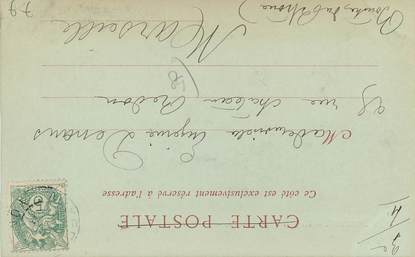 CARTE POSTALE
Ce côté est exclusivement réservé à l'adresse
Mademoiselle Eugénie Denans
28 rue Château Redon
Marseille
(Bouches du Rhône)